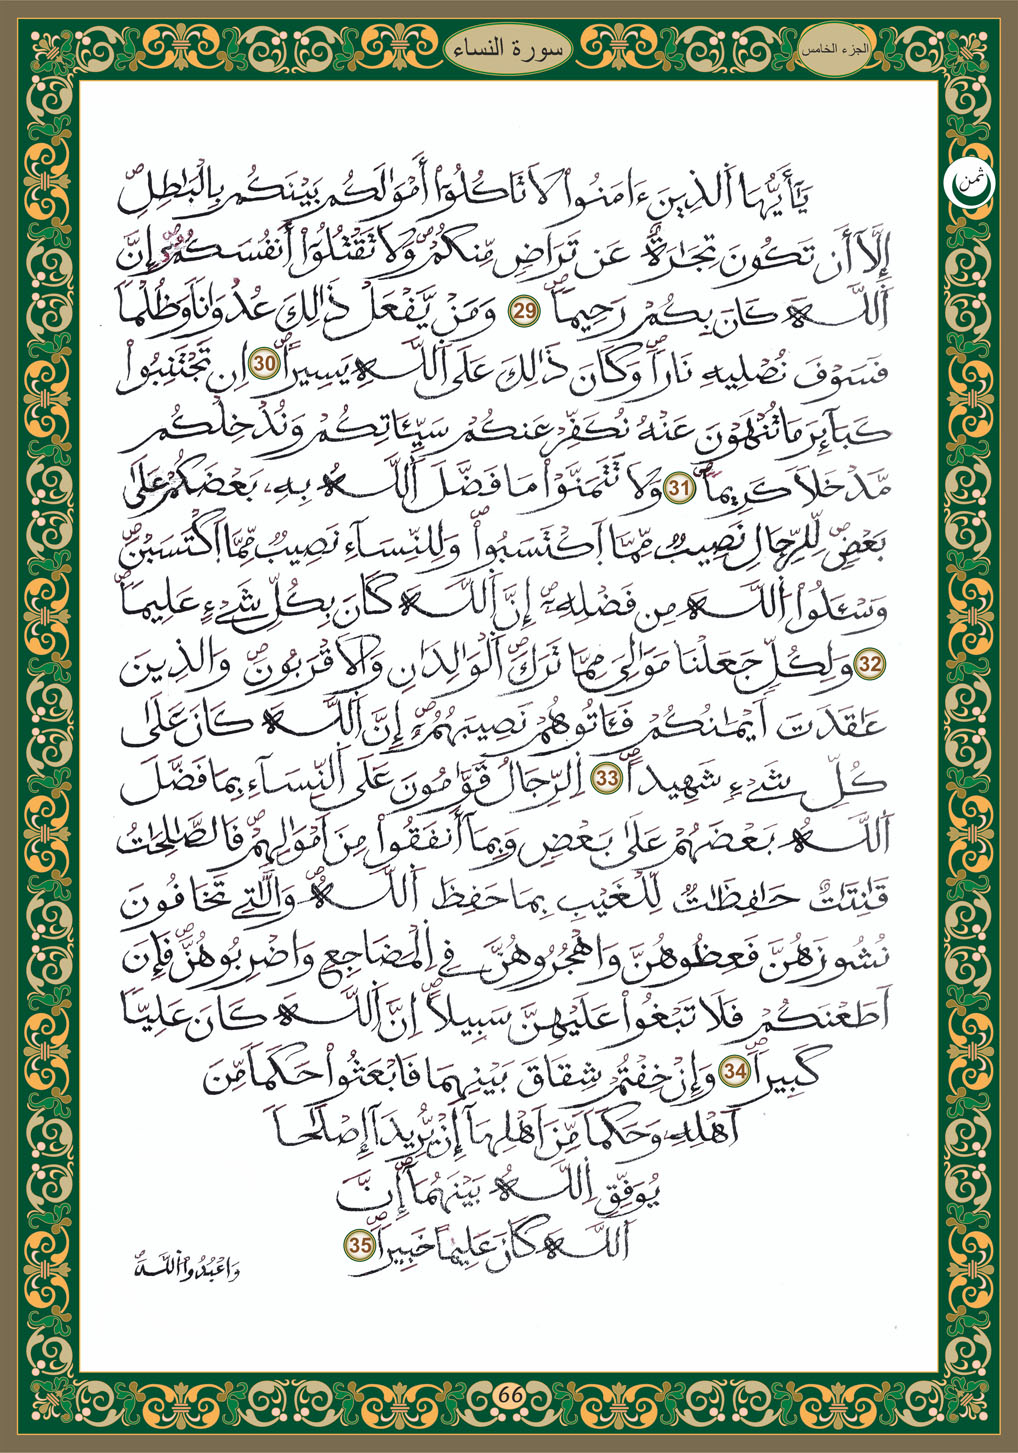 الجزء الخامس
سورة النساء
ثمن
يَٰٓأَيُّهَا اَ۬لذِينَ ءَامَنُواْ لَا تَاكُلُوٓاْ أَمْوَٰلَكُم بَيْنَكُم بِالْبَٰطِلِ
إِلَّآ أَن تَكُونَ تِجَٰرَةٌ عَن تَرَاضٖ مِّنكُمْ وَلَا تَقْتُلُوٓاْ أَنفُسَكُمُۥٓ إِنَّ
اَ۬للَّهَ كَانَ بِكُمْ رَحِيماٗ 29 وَمَنْ يَّفْعَلْ ذَٰلِكَ عُدْوَٰناٗ وَظُلْماٗ
فَسَوْفَ نُصْلِيهِ نَاراٗ وَكَانَ ذَٰلِكَ عَلَى اَ۬للَّهِ يَسِيراًۖ 30 اِن تَجْتَنِبُواْ
كَبَآئِرَ مَا تُنْهَوْنَ عَنْهُ نُكَفِّرْ عَنكُمْ سَيِّـَٔاتِكُمْ وَنُدْخِلْكُم
مَّدْخَلاٗ كَرِيماٗ 31 وَلَا تَتَمَنَّوْاْ مَا فَضَّلَ اَ۬للَّهُ بِهِۦ بَعْضَكُمْ عَلَىٰ
بَعْضٖ لِّلرِّجَالِ نَصِيبٞ مِّمَّا اَ۪كْتَسَبُواْ وَلِلنِّسَآءِ نَصِيبٞ مِّمَّا اَ۪كْتَسَبْنَ
وَسْـَٔلُواْ اُ۬للَّهَ مِن فَضْلِهِۦٓ إِنَّ اَ۬للَّهَ كَانَ بِكُلِّ شَےْءٍ عَلِيماٗ
32 وَلِكُلّٖ جَعَلْنَا مَوَٰلِيَ مِمَّا تَرَكَ اَ۬لْوَٰلِدَٰنِ وَالَاقْرَبُونَ وَالذِينَ
عَٰقَدَتَ اَيْمَٰنُكُمْ فَـَٔاتُوهُمْ نَصِيبَهُمُۥٓ إِنَّ اَ۬للَّهَ كَانَ عَلَىٰ
كُلِّ شَےْءٖ شَهِيداً 33 اِ۬لرِّجَالُ قَوَّٰمُونَ عَلَى اَ۬لنِّسَآءِ بِمَا فَضَّلَ
اَ۬للَّهُ بَعْضَهُمْ عَلَىٰ بَعْضٖ وَبِمَآ أَنفَقُواْ مِنَ اَمْوَٰلِهِمْ فَالصَّٰلِحَٰتُ
قَٰنِتَٰتٌ حَٰفِظَٰتٞ لِّلْغَيْبِ بِمَا حَفِظَ اَ۬للَّهُ وَالَّٰتِے تَخَافُونَ
نُشُوزَهُنَّ فَعِظُوهُنَّ وَاهْجُرُوهُنَّ فِے اِ۬لْمَضَاجِعِ وَاضْرِبُوهُنَّ فَإِنَ
اَطَعْنَكُمْ فَلَا تَبْغُواْ عَلَيْهِنَّ سَبِيلاً اِنَّ اَ۬للَّهَ كَانَ عَلِيّاٗ
كَبِيراٗ 34 وَإِنْ خِفْتُمْ شِقَاقَ بَيْنِهِمَا فَابْعَثُواْ حَكَماٗ مِّنَ
اَهْلِهِۦ وَحَكَماٗ مِّنَ اَهْلِهَآ إِنْ يُّرِيدَآ إِصْلَٰحاٗ
يُوَفِّقِ اِ۬للَّهُ بَيْنَهُمَآ إِنَّ
اَ۬للَّهَ كَانَ عَلِيماً خَبِيراٗ 35
وَاعْبُدُواْ اُ۬للَّهَ
66